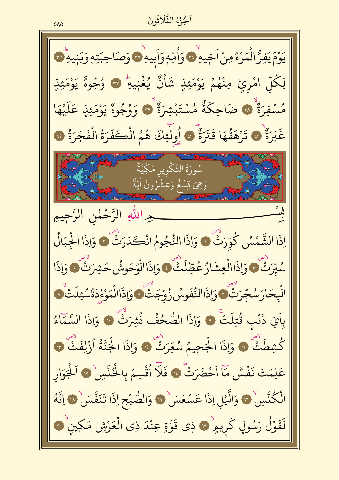 اَلْجُزْءُ الثَّلَاثُونَ
٥٨٥
يَوْمَ يَفِرُّ الْمَرْءُ مِنْ اَخِيهِ ﴿٣٤﴾ وَاُمِّهِ وَاَبِيهِ ﴿٣٥﴾ وَصَاحِبَتِهِ وَبَنِيهِ ﴿٣٦﴾
لِكُلِّ امْرِئٍ مِنْهُمْ يَوْمَئِذٍ شَأْنٌ يُغْنِيهِ ﴿٣٧﴾ وُجُوهٌ يَوْمَئِذٍ
مُسْفِرَةٌ ﴿٣٨﴾ ضَاحِكَةٌ مُسْتَبْشِرَةٌ ﴿٣٩﴾ وَوُجُوهٌ يَوْمَئِذٍ عَلَيْهَا
غَبَرَةٌ ﴿٤٠﴾ تَرْهَقُهَا قَتَرَةٌ ﴿٤١﴾ اُولٰئِكَ هُمُ الْكَفَرَةُ الْفَجَرَةُ ﴿٤٢﴾
سُورَةُ التَّكْوِيرِ مَكِّيَّةٌ
وَهِيَ تِسْعٌ وَعِشْرُونَ اٰيَةً
بِسْمِ اللّٰهِ الرَّحْمٰنِ الرَّحِيمِ
اِذَا الشَّمْسُ كُوِّرَتْ ﴿١﴾ وَاِذَا النُّجُومُ انْكَدَرَتْ ﴿٢﴾ وَاِذَا الْجِبَالُ
سُيِّرَتْ ﴿٣﴾ وَاِذَا الْعِشَارُ عُطِّلَتْ ﴿٤﴾ وَاِذَا الْوُحُوشُ حُشِرَتْ ﴿٥﴾ وَاِذَا
الْبِحَارُ سُجِّرَتْ ﴿٦﴾ وَاِذَا النُّفُوسُ زُوِّجَتْ ﴿٧﴾ وَاِذَا الْمَوْءُدَةُ سُئِلَتْ ﴿٨﴾
بِاَيِّ ذَنْبٍ قُتِلَتْ ﴿٩﴾ وَاِذَا الصُّحُفُ نُشِرَتْ ﴿١٠﴾ وَاِذَا السَّمَاءُ
كُشِطَتْ ﴿١١﴾ وَاِذَا الْجَحِيمُ سُعِّرَتْ ﴿١٢﴾ وَاِذَا الْجَنَّةُ اُزْلِفَتْ ﴿١٣﴾
عَلِمَتْ نَفْسٌ مَا اَحْضَرَتْ ﴿١٤﴾ فَلَا اُقْسِمُ بِالْخُنَّسِ ﴿١٥﴾ اَلْجَوَارِ
الْكُنَّسِ ﴿١٦﴾ وَالَّيْلِ اِذَا عَسْعَسَ ﴿١٧﴾ وَالصُّبْحِ اِذَا تَنَفَّسَ ﴿١٨﴾ اِنَّهُ
لَقَوْلُ رَسُولٍ كَرِيمٍ ﴿١٩﴾ ذِي قُوَّةٍ عِنْدَ ذِي الْعَرْشِ مَكِينٍ ﴿٢٠﴾